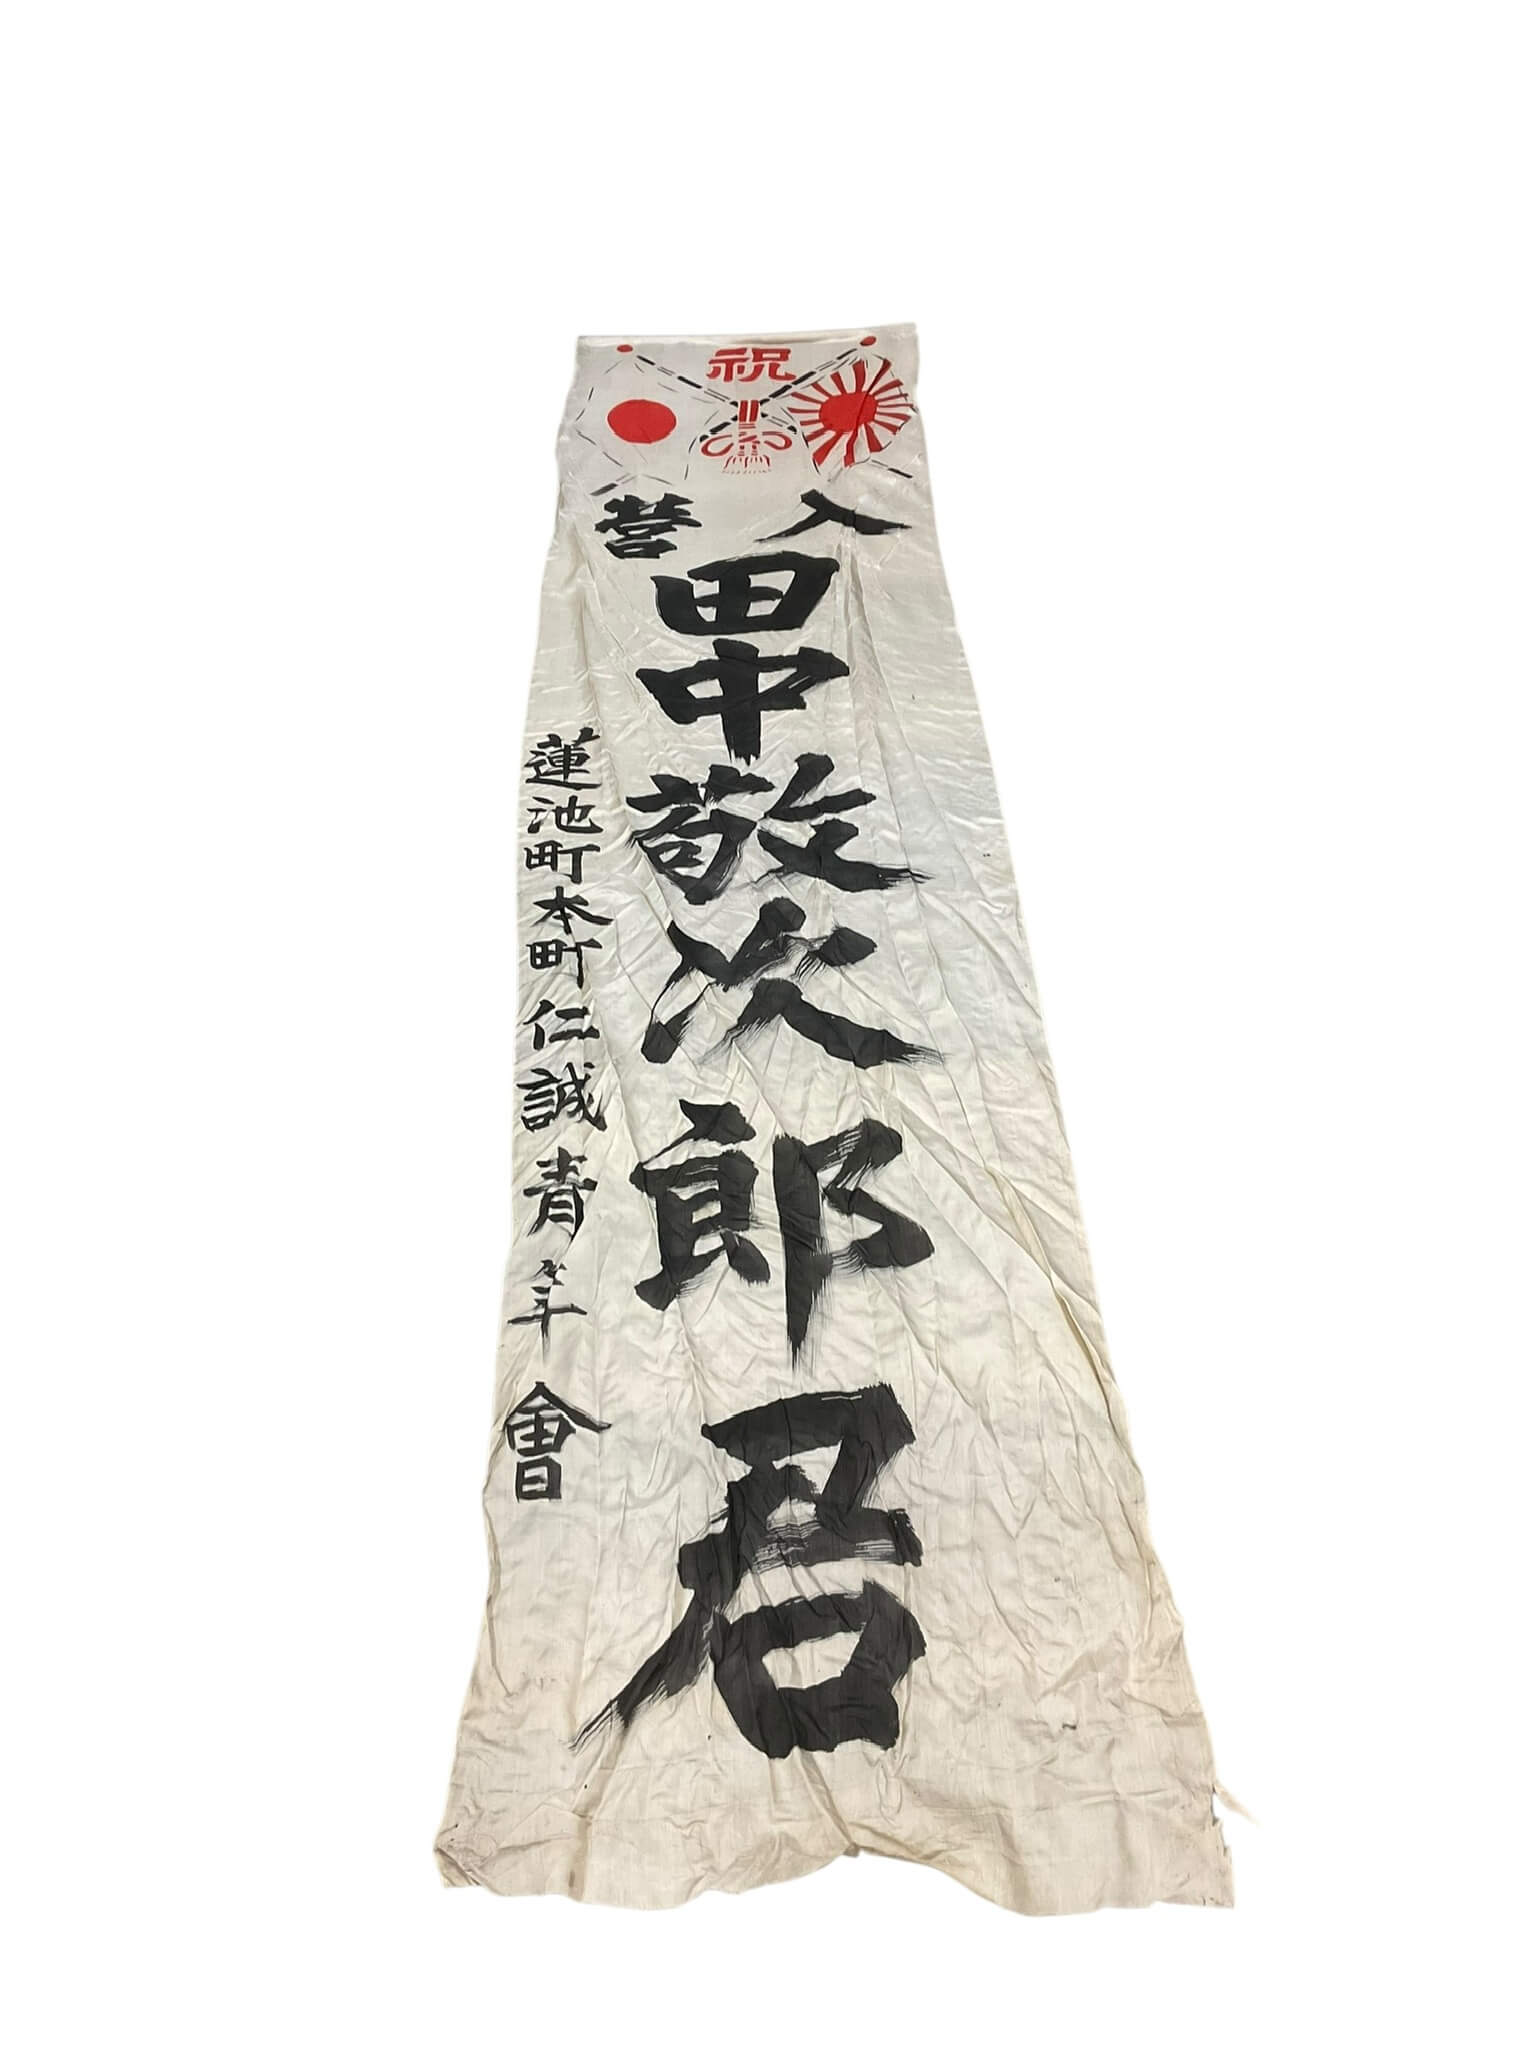 祝
入營
田中敬次郎君
蓮池町本町仁誠青年會